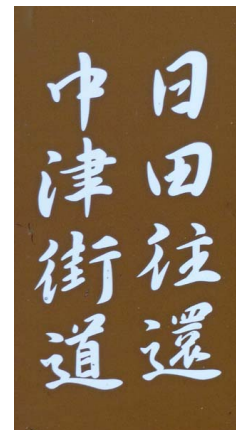 日田往還
中津街道